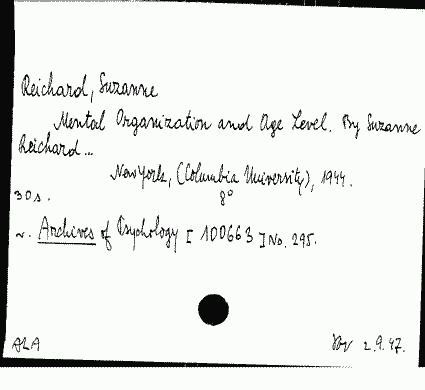 Reichard, Suzanne
Mental Organization and Age Level. By Suzanne
Reichard...
New York, (Columbia University), 1944.
30 s. 8°
~. Archives of Psychology [ 100663 ] No. 295.
ALA 2.9.47.